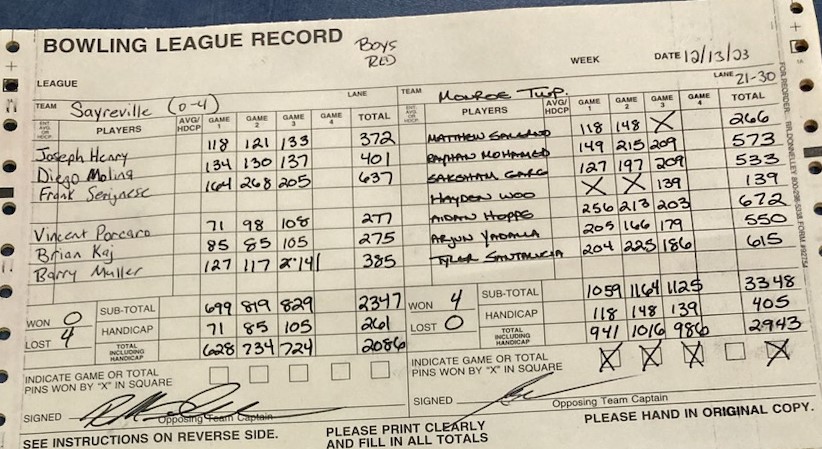 BOWLING LEAGUE RECORD Boys RED
WEEK DATE 12/13/23
LEAGUE LANE 21-30
TEAM Sayreville (0-4) LANE TEAM MONROE TWP.
ENT. AVG. OR HDCP. PLAYERS AVG/HDCP GAME 1 GAME 2 GAME 3 GAME 4 TOTAL ENT. AVG. OR HDCP. PLAYERS AVG/HDCP GAME 1 GAME 2 GAME 3 GAME 4 TOTAL
Joseph Henry 118 121 133 372 MATTHEW 118 148 X 266
Diego Molina 134 130 137 401 RAYHAN MOHAMED 149 215 209 573
Frank Serignese 164 268 205 637 SAKSHAM GARG 127 197 209 533
HAYDEN WOO X X 139 139
Vincent Porcaro 71 98 108 277 AIDAN HOPPE 256 213 203 672
Brian Kaj 85 85 105 275 ARJUN YADALLA 205 166 179 550
Barry Muller 127 117 141 385 TYLER SANTALUCIA 204 225 186 615
WON 0 SUB-TOTAL 699 819 829 2347 WON 4 SUB-TOTAL 1059 1164 1125 3348
LOST 4 HANDICAP 71 85 105 261 LOST 0 HANDICAP 118 148 139 405
TOTAL INCLUDING HANDICAP 628 734 724 2086 TOTAL INCLUDING HANDICAP 941 1016 986 2943
INDICATE GAME OR TOTAL PINS WON BY "X" IN SQUARE INDICATE GAME OR TOTAL PINS WON BY "X" IN SQUARE X X X X
SIGNED Opposing Team Captain SIGNED Opposing Team Captain
SEE INSTRUCTIONS ON REVERSE SIDE. PLEASE PRINT CLEARLY AND FILL IN ALL TOTALS PLEASE HAND IN ORIGINAL COPY.